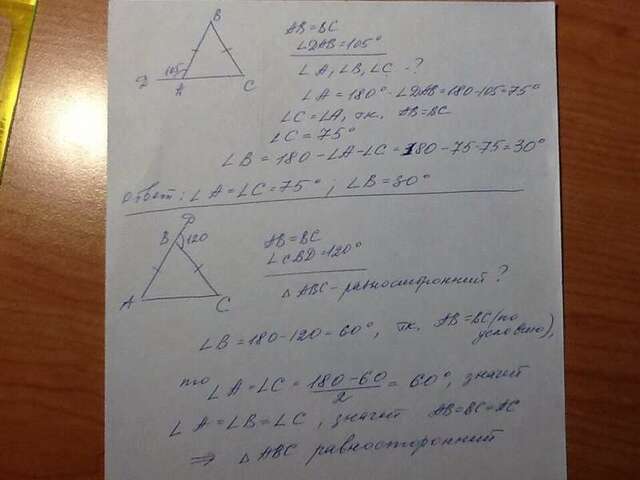 B
AB=BC
∠DAB=105°
105
D
A
C
∠A, ∠B, ∠C -?
∠A=180°-∠DAB=180-105=75°
∠C=∠A, т.к. AB=BC
∠C=75°
∠B=180-∠A-∠C=180-75-75=30°
Ответ: ∠A=∠C=75°; ∠B=30°
D
B
120
AB=BC
∠CBD=120°
△ABC-равносторонний?
A
C
∠B=180-120=60°, т.к. AB=BC (по
условию),
то ∠A=∠C=180-60/2=60°, значит
∠A=∠B=∠C, значит AB=BC=AC
⇒ △ABC равносторонний